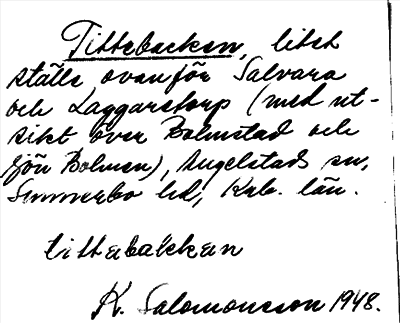 Tittebacken, litet
ställe ovanför Salvara
och Laggaretorp (med ut-
sikt över Bolmstad och
sjön Bolmen), Angelstads sn,
Sunnerbo hd, Krb. län.
tittabakkan
K. Salomonsson 1948.